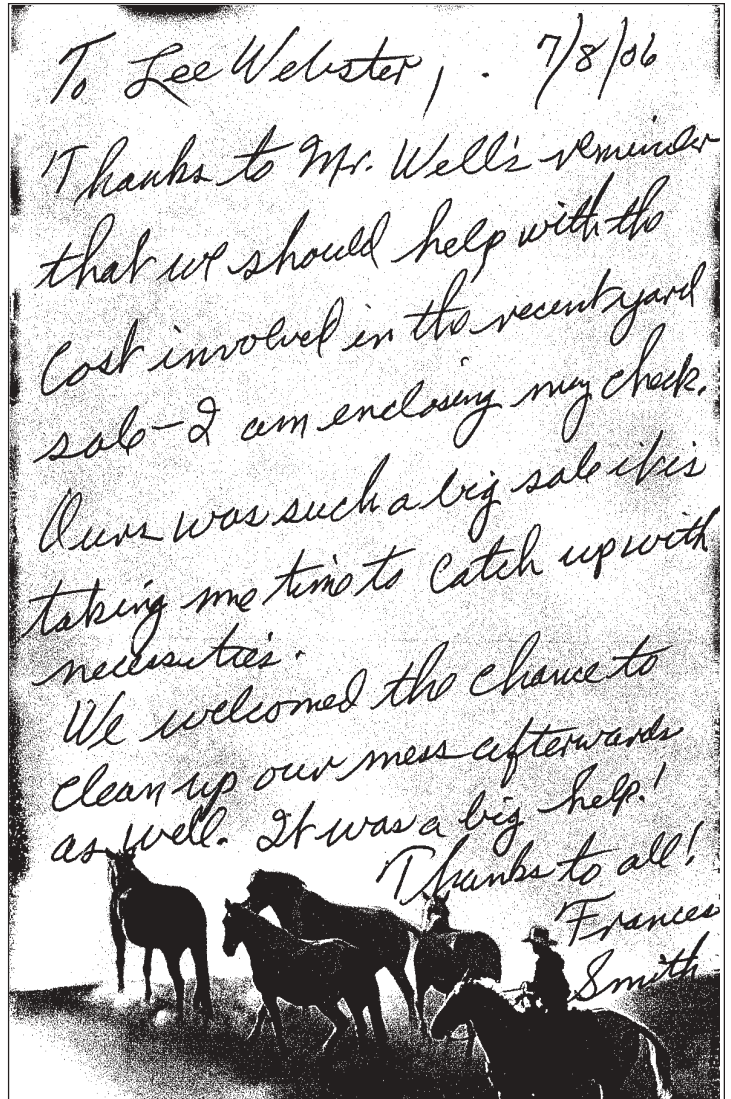 To Lee Webster, . 7/8/06
Thanks to Mr. Well's reminder
that we should help with the
Cost involved in the recent yard
sale - I am enclosing my check.
Ours was such a big sale it is
taking me time to catch up with
necessities.
We welcomed the chance to
clean up our mess afterwards
as well. It was a big help!
Thanks to all!
Frances
Smith